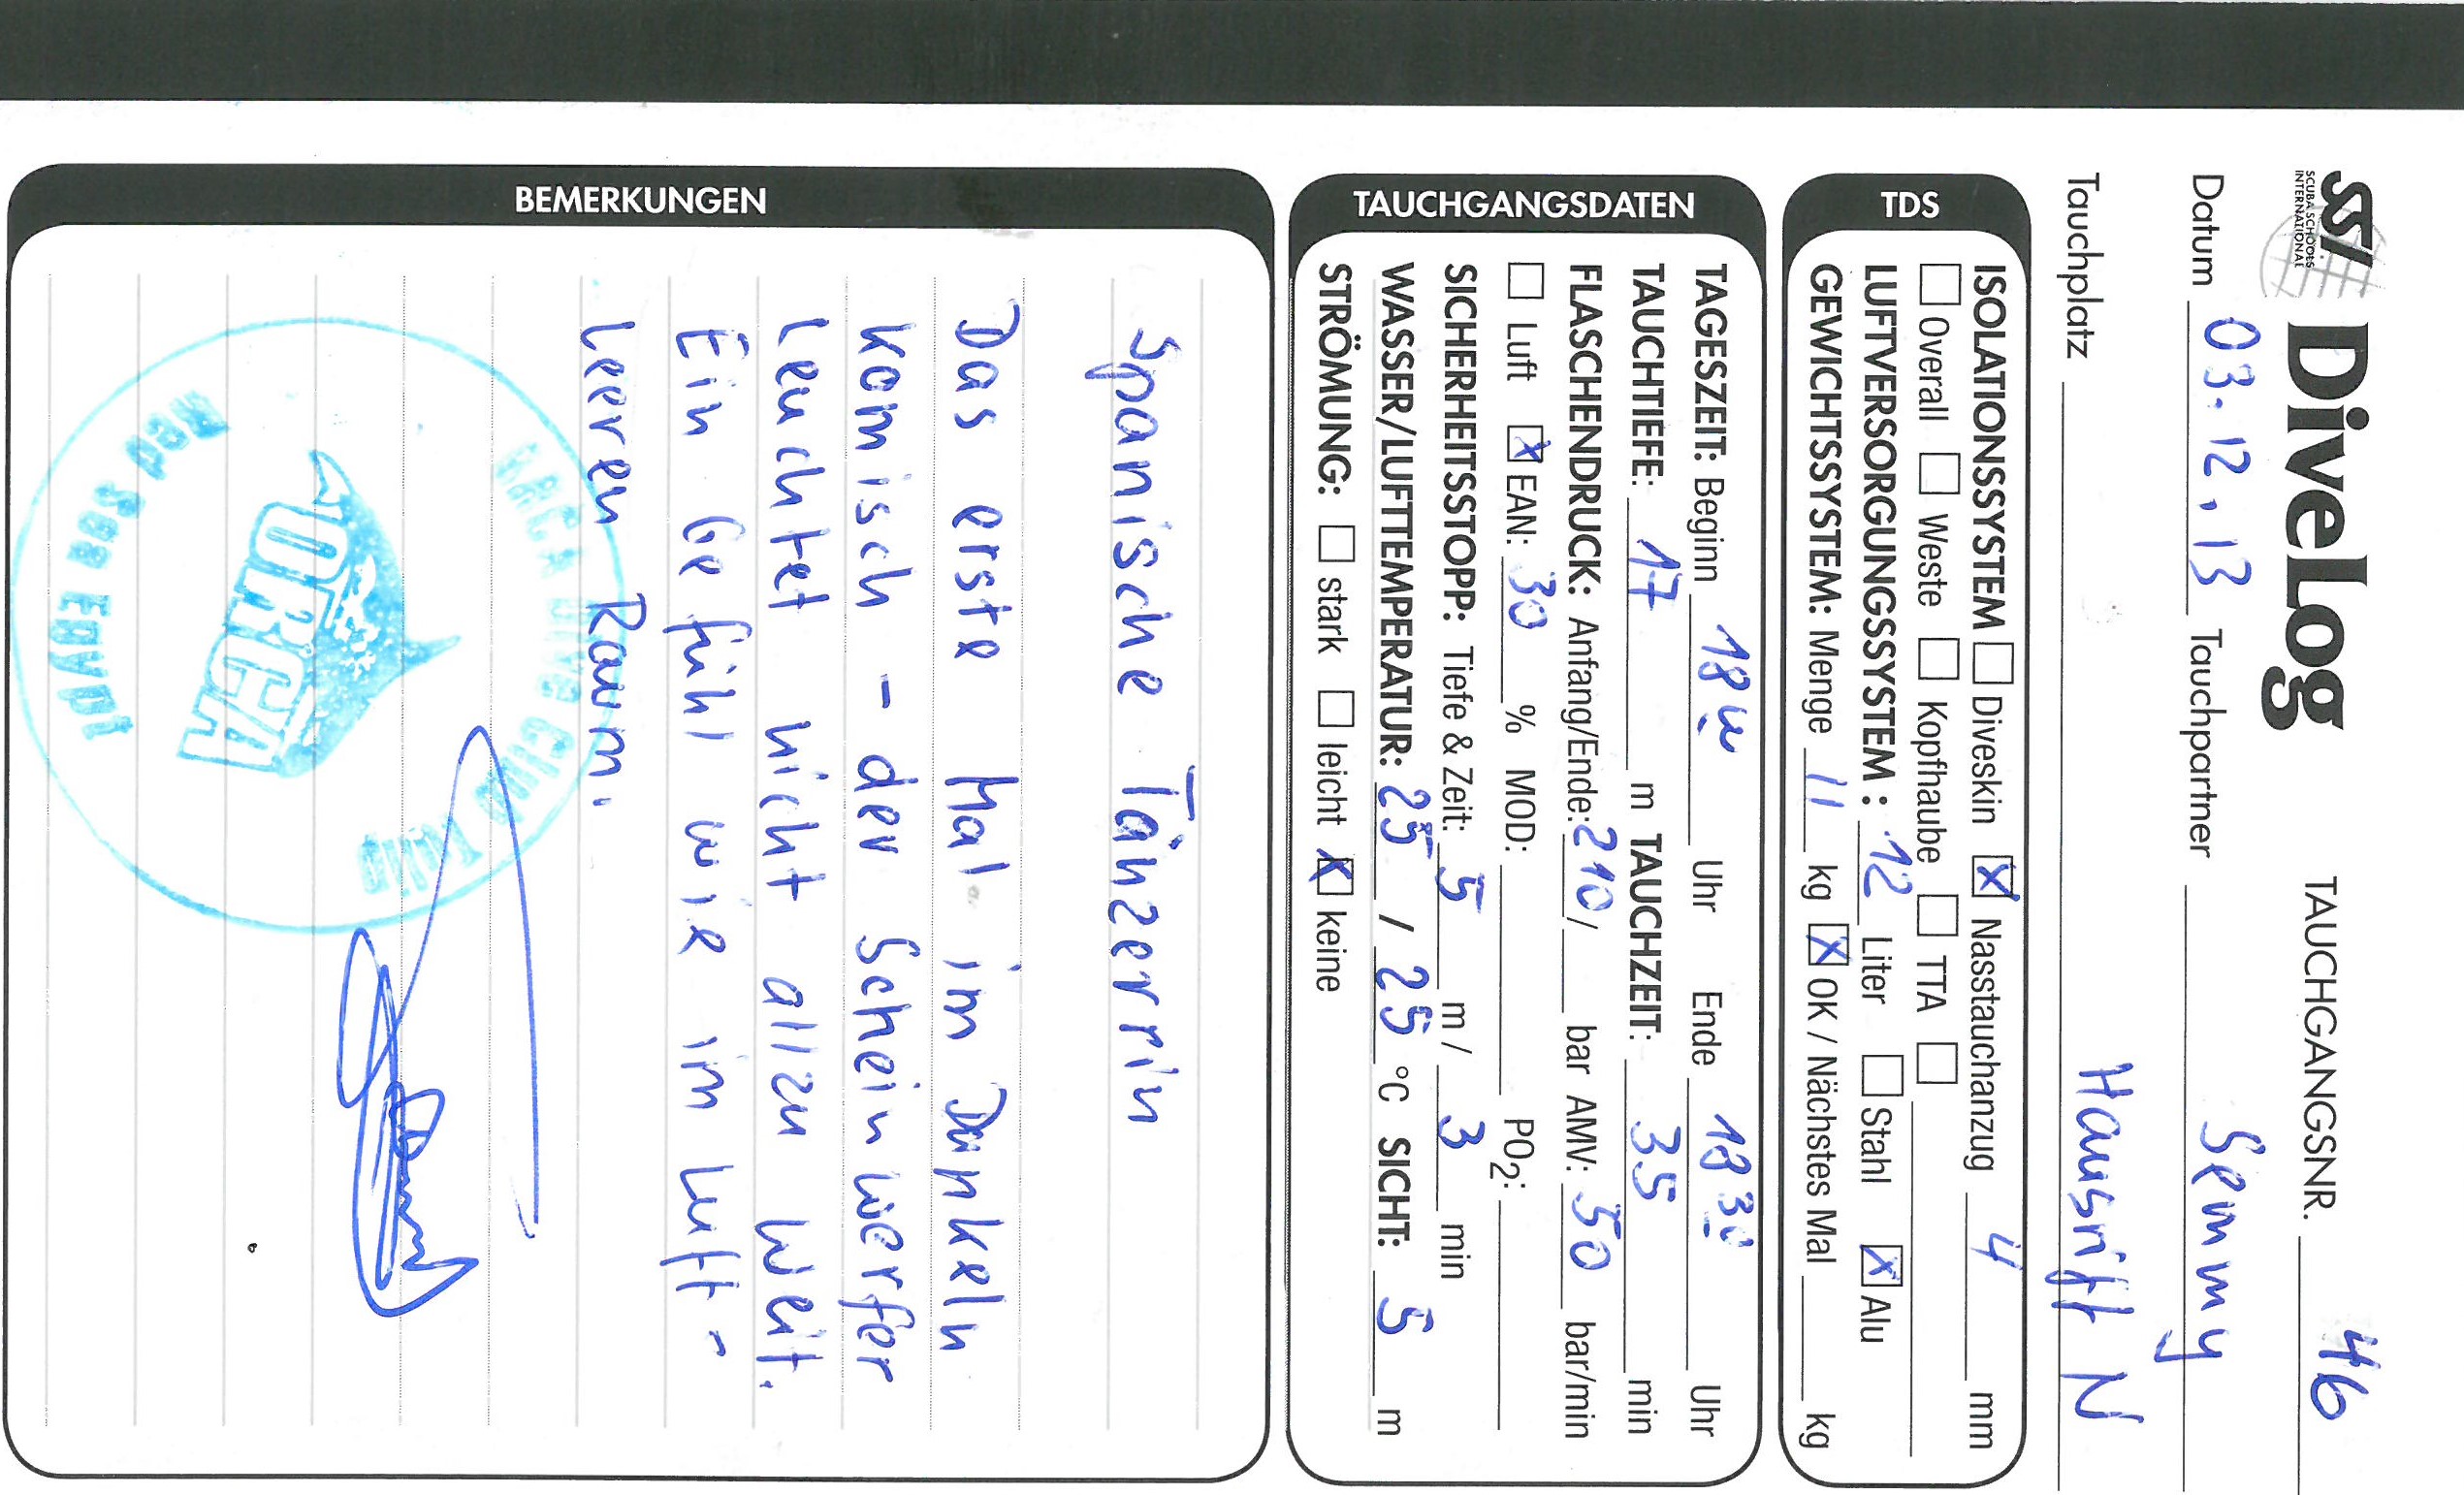 SSI SCUBA SCHOOLS INTERNATIONAL DiveLog TAUCHGANGSNR. 46
Datum 03.12.13 Tauchpartner Semmy
Tauchplatz Hausriff N
TDS
ISOLATIONSSYSTEM Diveskin X Nasstauchanzug 4 mm
Overall Weste Kopfhaube TTA
LUFTVERSORGUNGSSYSTEM: 12 Liter Stahl X Alu
GEWICHTSSYSTEM: Menge 11 kg X OK / Nächstes Mal kg
TAUCHGANGSDATEN
TAGESZEIT: Beginn Uhr Ende 18 30 Uhr
TAUCHTIEFE: 17 m TAUCHZEIT: 35 min
FLASCHENDRUCK: Anfang/Ende: 210 / bar AMV: 50 bar/min
Luft X EAN: 30 % MOD: PO2:
SICHERHEITSSTOPP: Tiefe & Zeit: 5 m / 3 min
WASSER/LUFTTEMPERATUR: 25 / 25 °C SICHT: 5 m
STRÖMUNG: stark leicht X keine
BEMERKUNGEN
Spanische Tänzerrin
Das erste Mal im Dunkeln
komisch - der Scheinwerfer
leuchtet nicht allzu weit.
Ein Gefühl wie im Luft-
leeren Raum.
ORCA Dive Club
ORCA
Red Sea Egypt